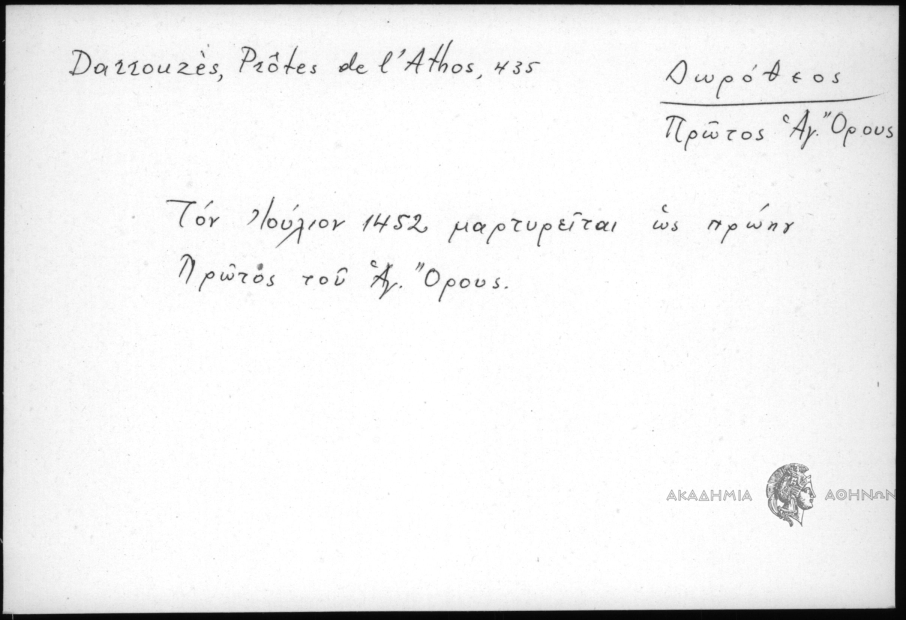 Darrouzès, Prôtes de l'Athos, 435
Δωρόθεος
Πρῶτος Ἁγ. Ὄρους
Τόν Ἰούλιον 1452 μαρτυρεῖται ὡς πρώην
Πρῶτος τοῦ Ἁγ. Ὄρους.
ΑΚΑΔΗΜΙΑ ΑΘΗΝΩΝ